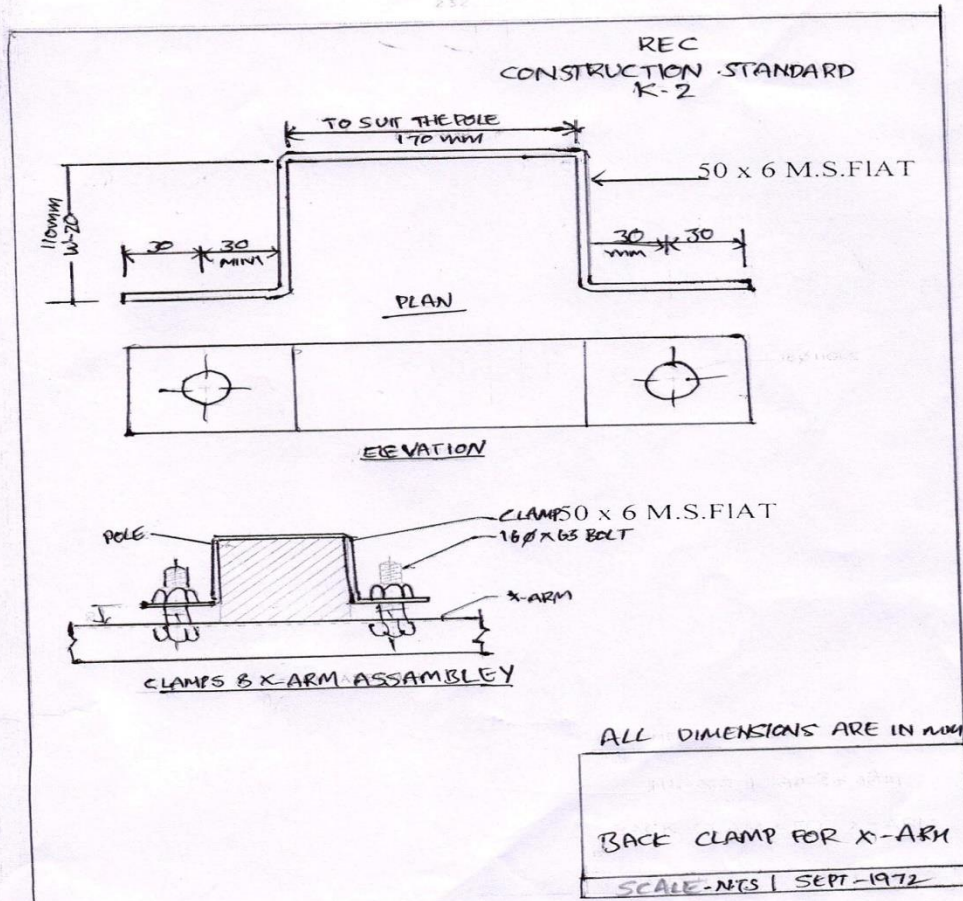 REC
CONSTRUCTION STANDARD
K-2
TO SUIT THE POLE
170 MM
50 x 6 M.S.FIAT
110mm
W-20
30
30
MINM
30
MM
30
PLAN
ELEVATION
POLE
CLAMP50 x 6 M.S.FIAT
16Ø X 65 BOLT
X-ARM
CLAMPS & X-ARM ASSAMBLEY
ALL DIMENSIONS ARE IN MM
BACK CLAMP FOR X-ARM
SCALE-NTS | SEPT-1972